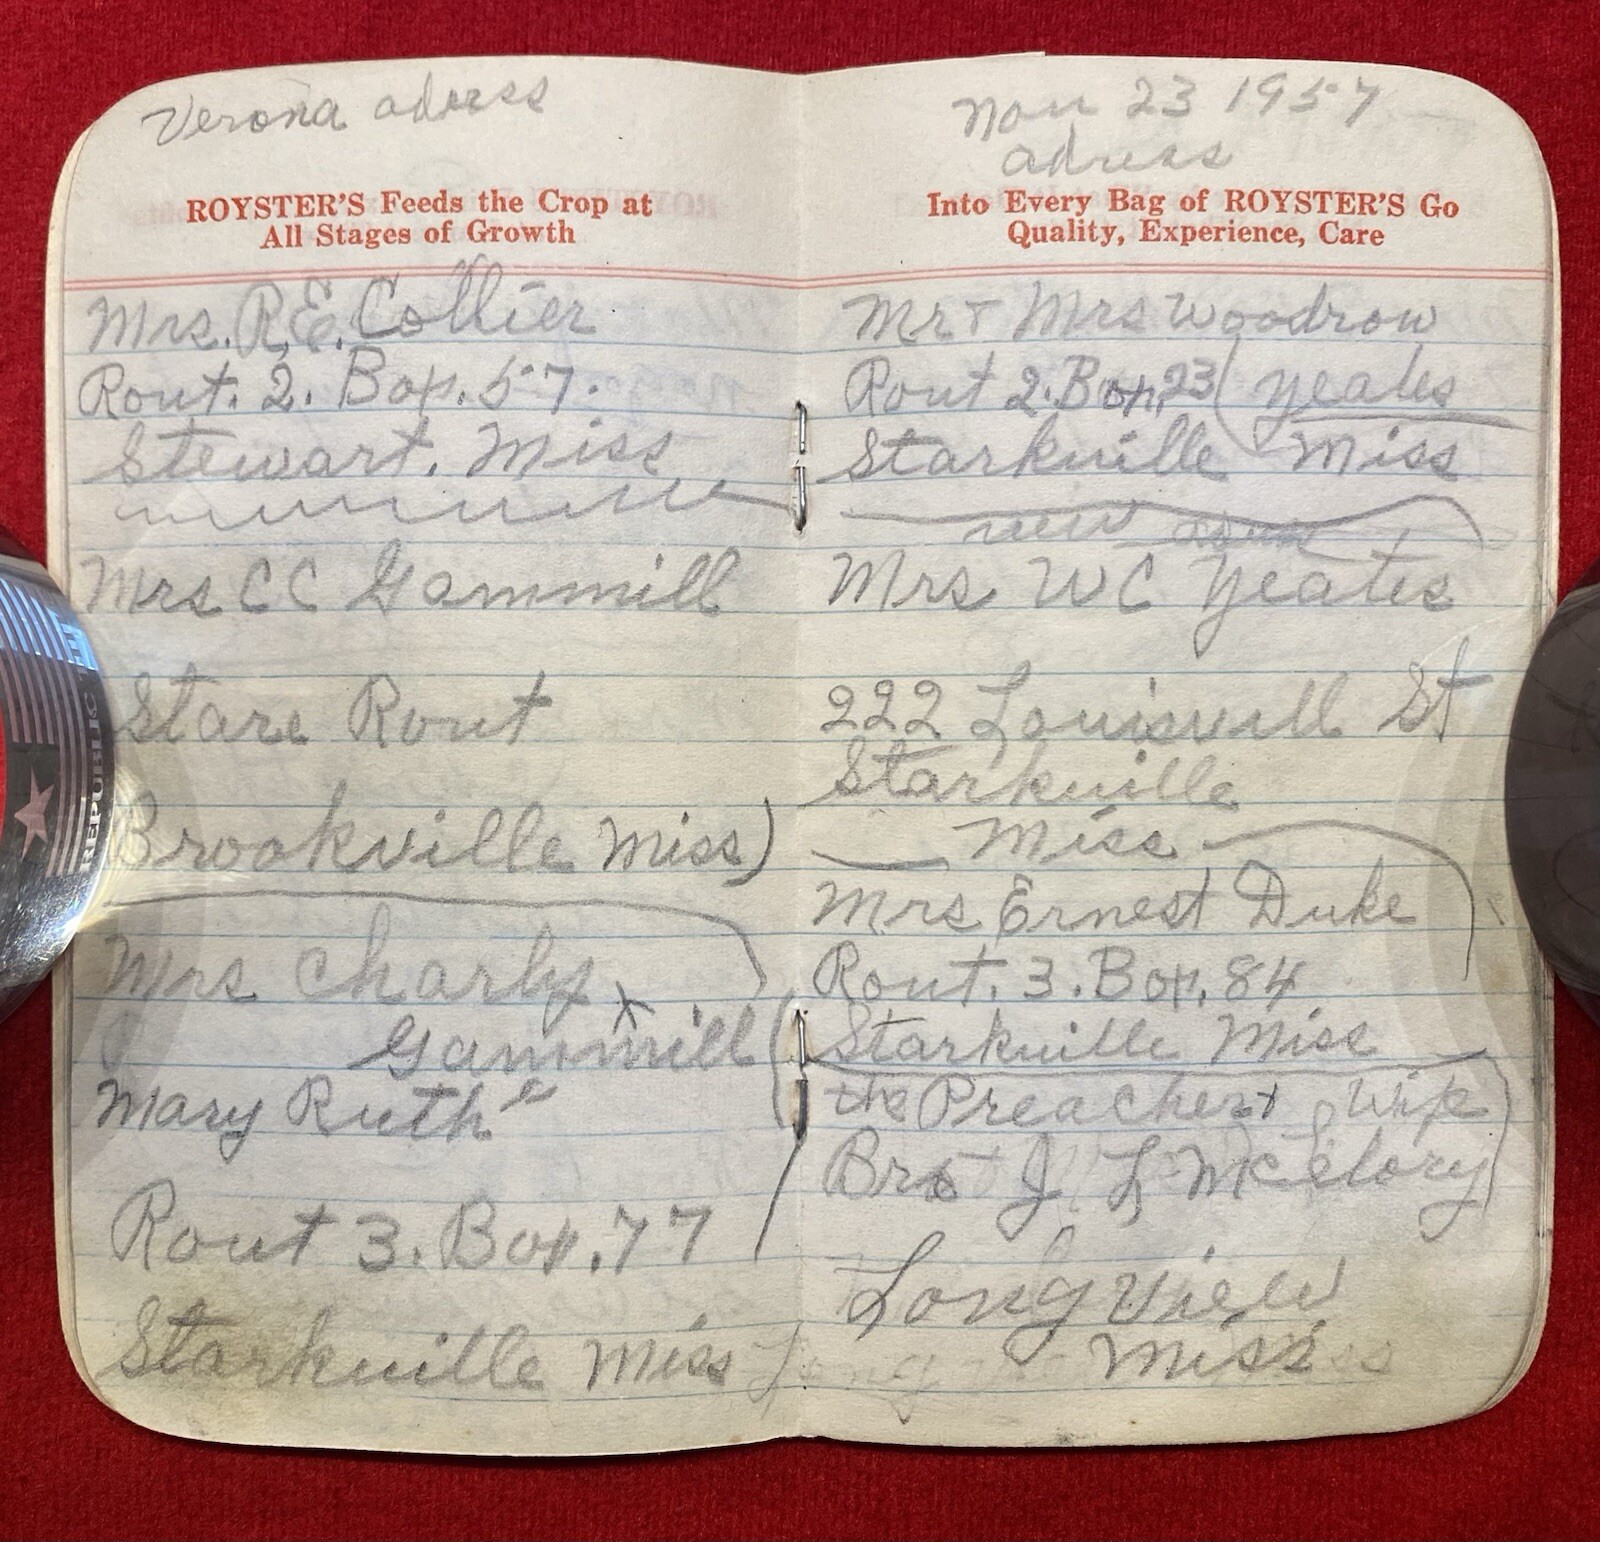 Verona adress
ROYSTER'S Feeds the Crop at
All Stages of Growth
Mrs. R.E. Collier
Rout. 2. Box. 57.
Stewart. Miss
Mrs CC Gammill
Stare Rout
Brookville Miss)
Mrs Charly
Gammill
Mary Ruth "
Rout 3. Box. 77
Starkville Miss
Nov 23 1957
adress
Into Every Bag of ROYSTER'S Go
Quality, Experience, Care
Mr + Mrs Woodrow
Rout 2. Box. 23 ( Yeates
Starkville Miss
new
Mrs WC Yeates
222 Louisvill St
Starkville
Miss
Mrs Ernest Duke
Rout. 3. Box. 84
Starkville Miss
the Preacher + Wife
Bro J L McElory
Long View
Miss
REPUBLIC